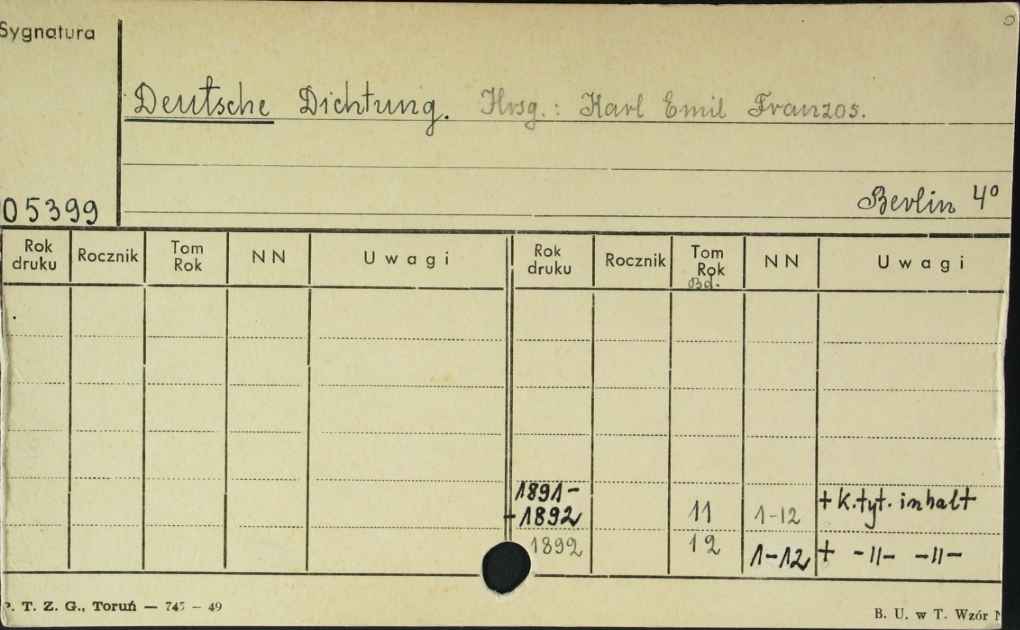 Sygnatura
Deutsche Dichtung. Hrsg.: Karl Emil Franzos.
05399
Berlin 4º
Rok druku Rocznik Tom Rok NN Uwagi Rok druku Rocznik Tom Rok Bd. NN Uwagi
1891-
-1892 11 1-12 + k.tyt. inhalt
1892 12 1-12 + -"- -"-
P. T. Z. G., Toruń — 745 — 49
B. U. w T. Wzór